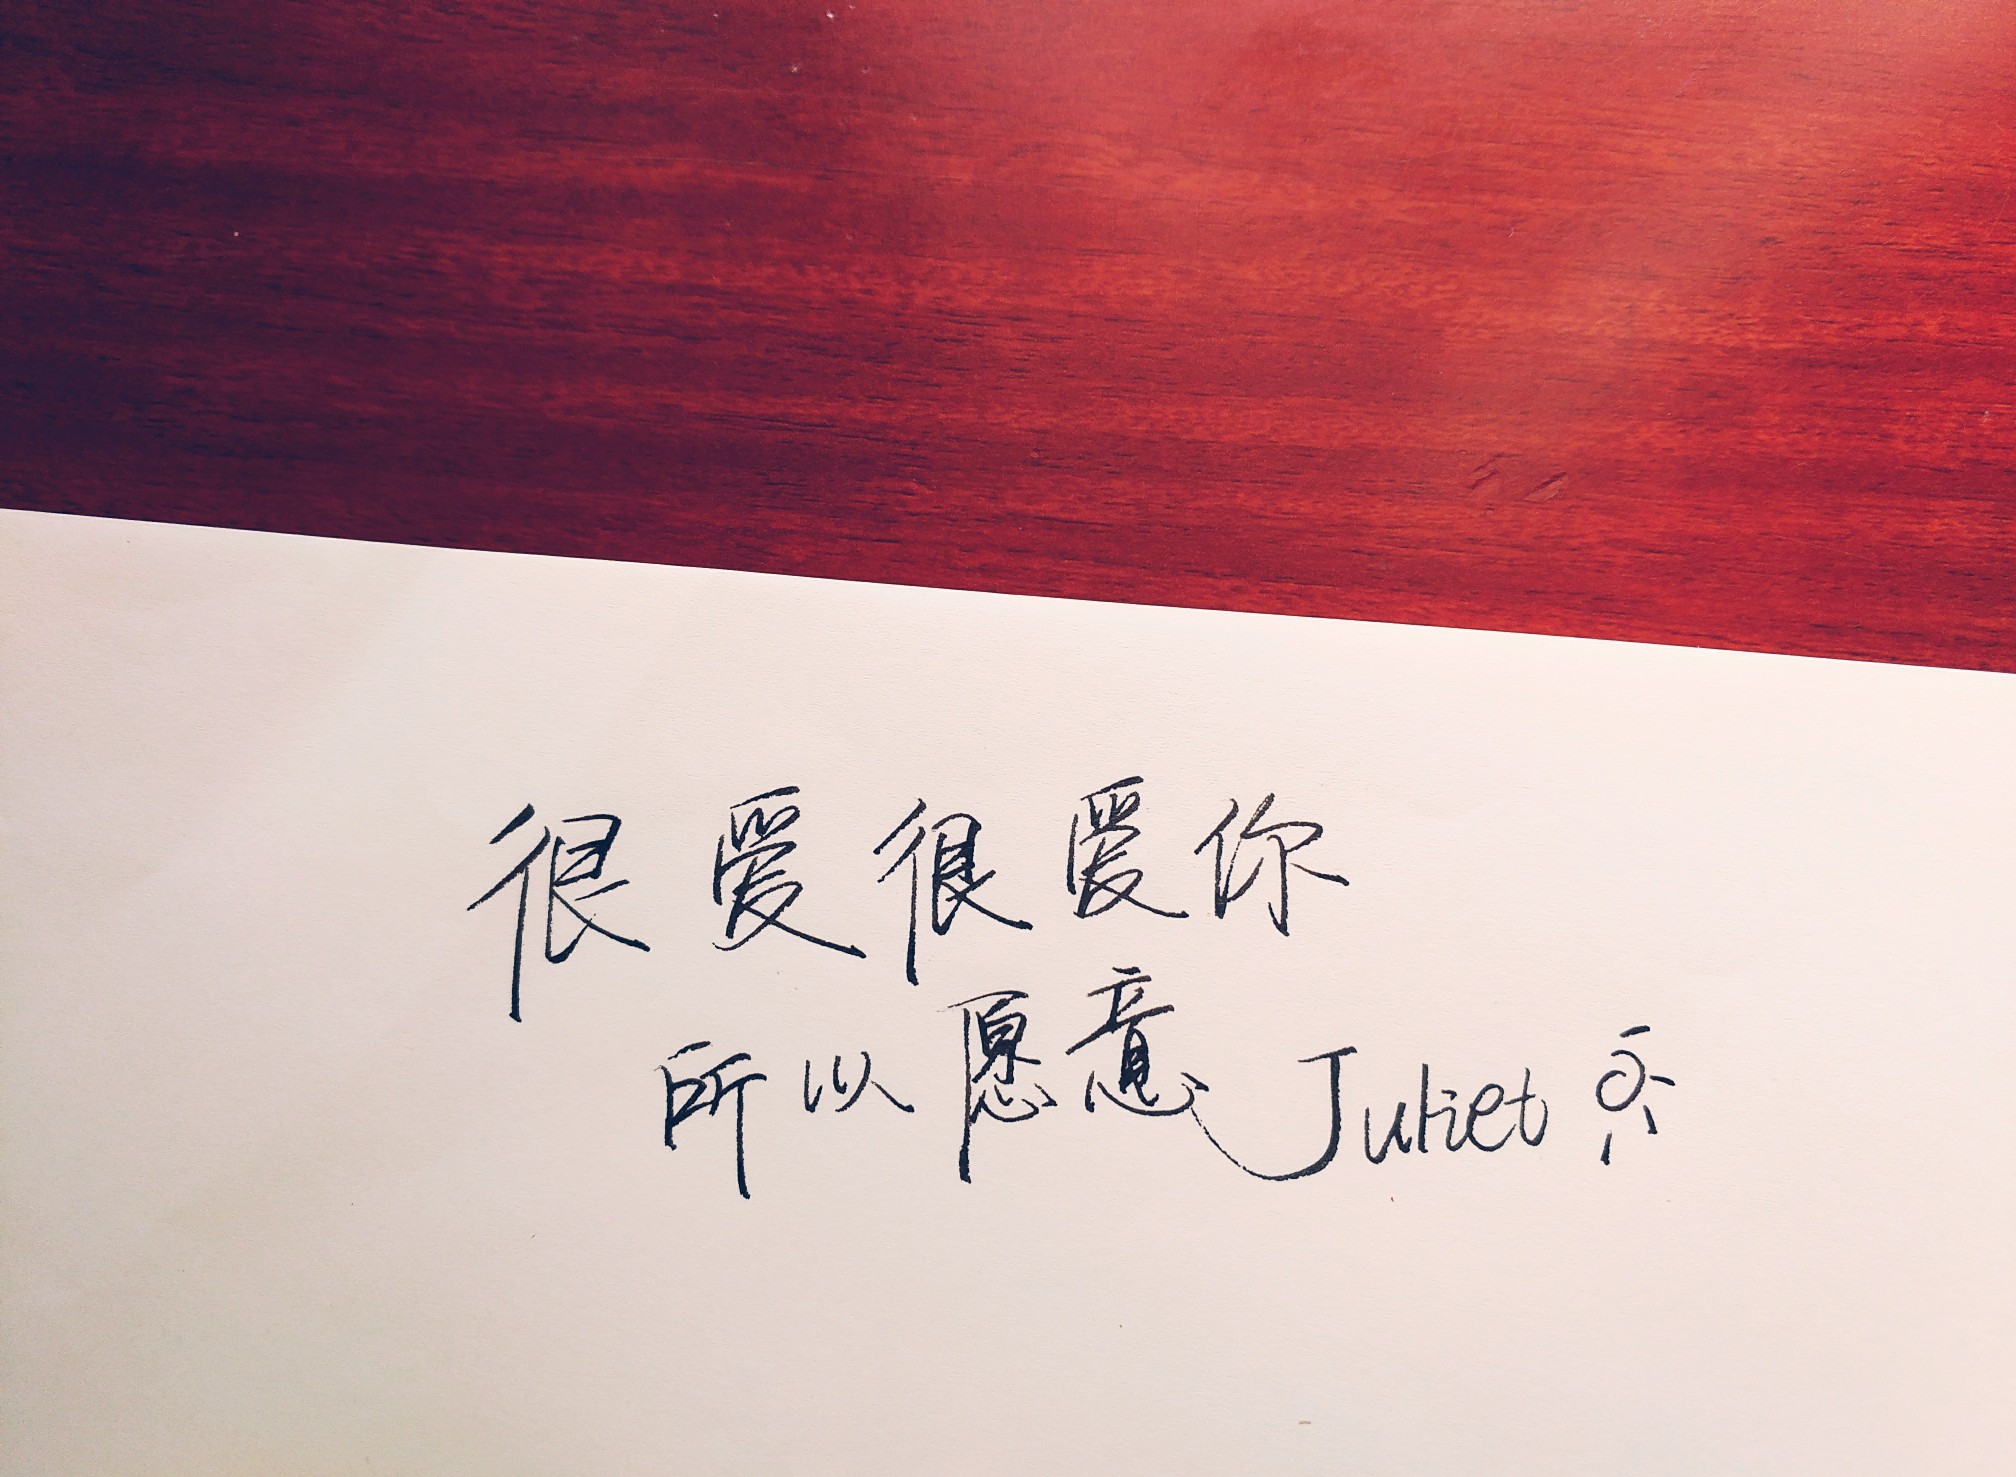 很爱很爱你
所以愿意 Juliet